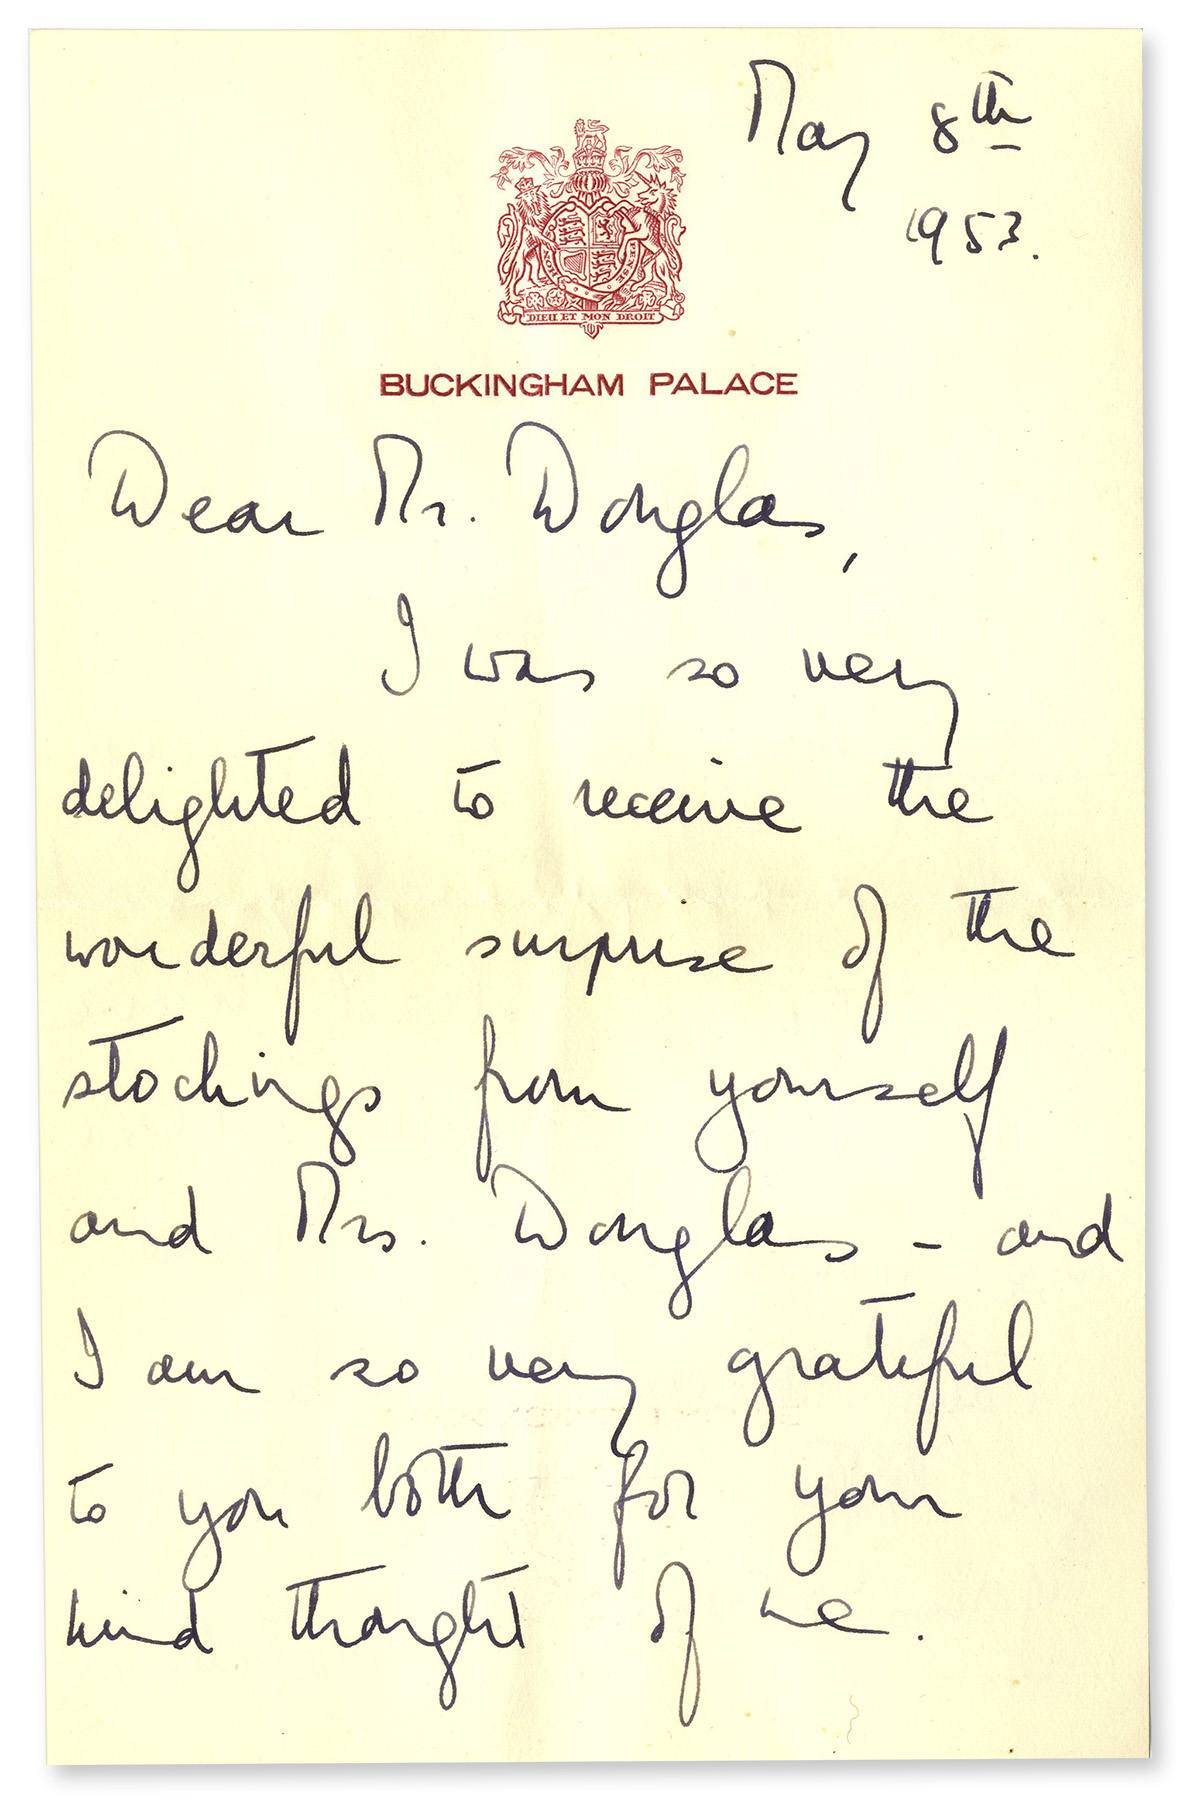 May 8th
1953.
HON
PENSE
DIEU ET MON DROIT
BUCKINGHAM PALACE
Dear Mr. Douglas,
I was so very
delighted to receive the
wonderful surprise of the
stockings from yourself
and Mrs. Douglas - and
I am so very grateful
to you both for your
kind thought of me.